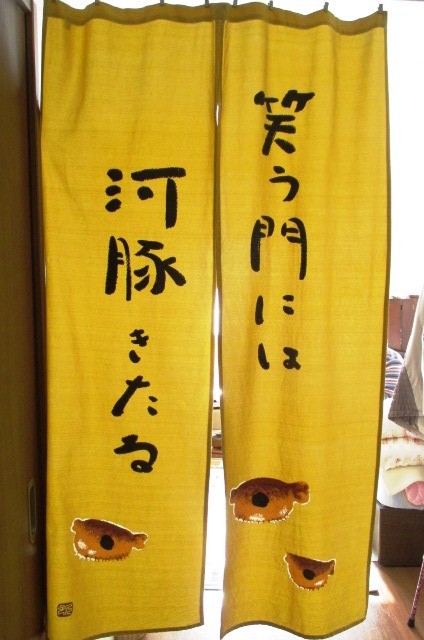 笑う門には
河豚きたる